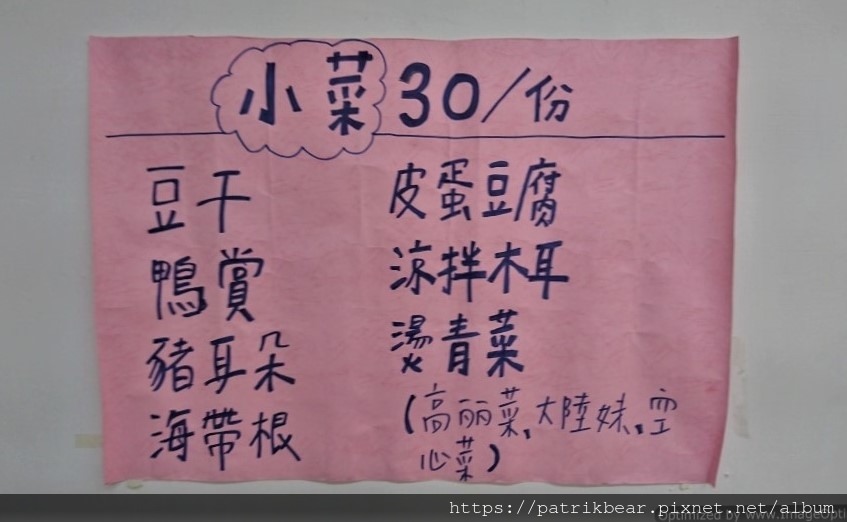 小菜 30/份
豆干
鴨賞
豬耳朵
海帶根
皮蛋豆腐
涼拌木耳
燙青菜
(高丽菜、大陸妹、空
心菜)
https://patrikbear.pixnet.net/album
Optimized by www.ImageOpti